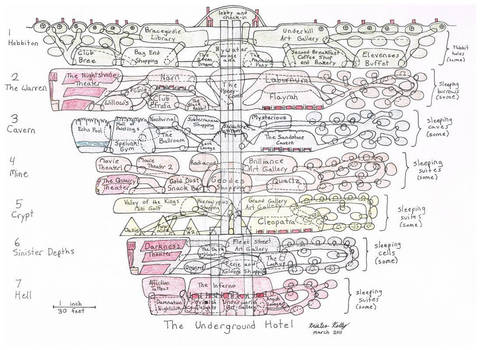 lobby and
check-in
1
Hobbiton
Bracegirdle
Library
Bywater
Underhill
Art Gallery
Club
Bree
Bag End
Shopping
Second Breakfast
Coffee Shop
and Bakery
Elevenses
Buffet
Hobbit
holes
(some)
2
The Warren
The Nightshade
Theater
Narn
Laburnum
Willows
Club
Efrafa
Flayrah
sleeping
burrows
(some)
3
Cavern
Echo Pool
Nocturnal
Subterranean
Shopping
Mysterious
Spelunk
Golf
The
Ballroom
The Sandstone
Cavern
sleeping
caves
(some)
4
Mine
Movie
Theater 1
Movie
Theater 2
Radiance
Brilliance
Art Gallery
The Quarry
Theater
Gold Dust
Snack Bar
Geode
Shopping
Quartz
sleeping
suites
(some)
5
Crypt
Valley of the Kings
Mini Golf
Hieroglyphics
Shopping
Grand Gallery
Art Gallery
Cleopatra
sleeping
suites
(some)
6
Sinister Depths
Darkness
Theater
The Dark
Fleet Street
Art Gallery
sleeping
cells
(some)
7
Hell
The Inferno
Damnation
Nightclub
Underworld
Art Gallery
sleeping
suites
(some)
1 inch
30 feet
The Underground Hotel
Kristen Kelly
March 2011